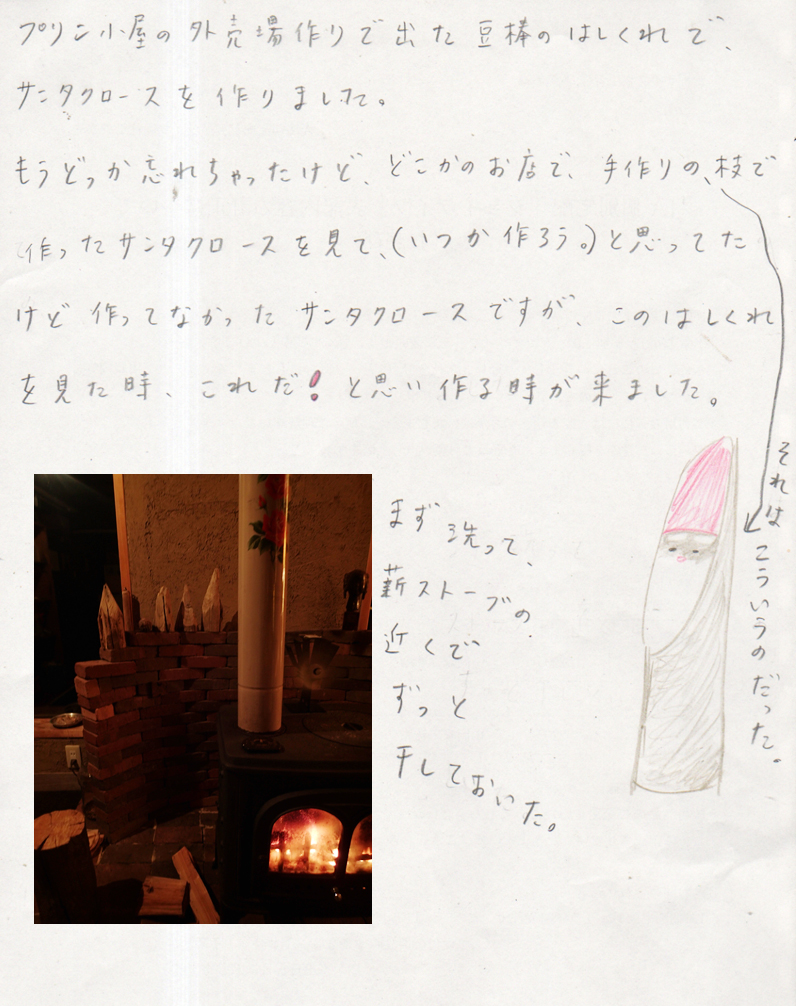 プリン小屋の外売場作りで出た豆棒のはしくれで、
サンタクロースを作りました。
もうどっか忘れちゃったけど、どこかのお店で、手作りの、枝で
作ったサンタクロースを見て、(いつか作ろう。)と思ってた
けど作ってなかったサンタクロースですが、このはしくれ
を見た時、これだ!と思い作る時が来ました。
それはこういうのだった。
まず洗って、
薪ストーブの
近くで
ずっと
干しておいた。